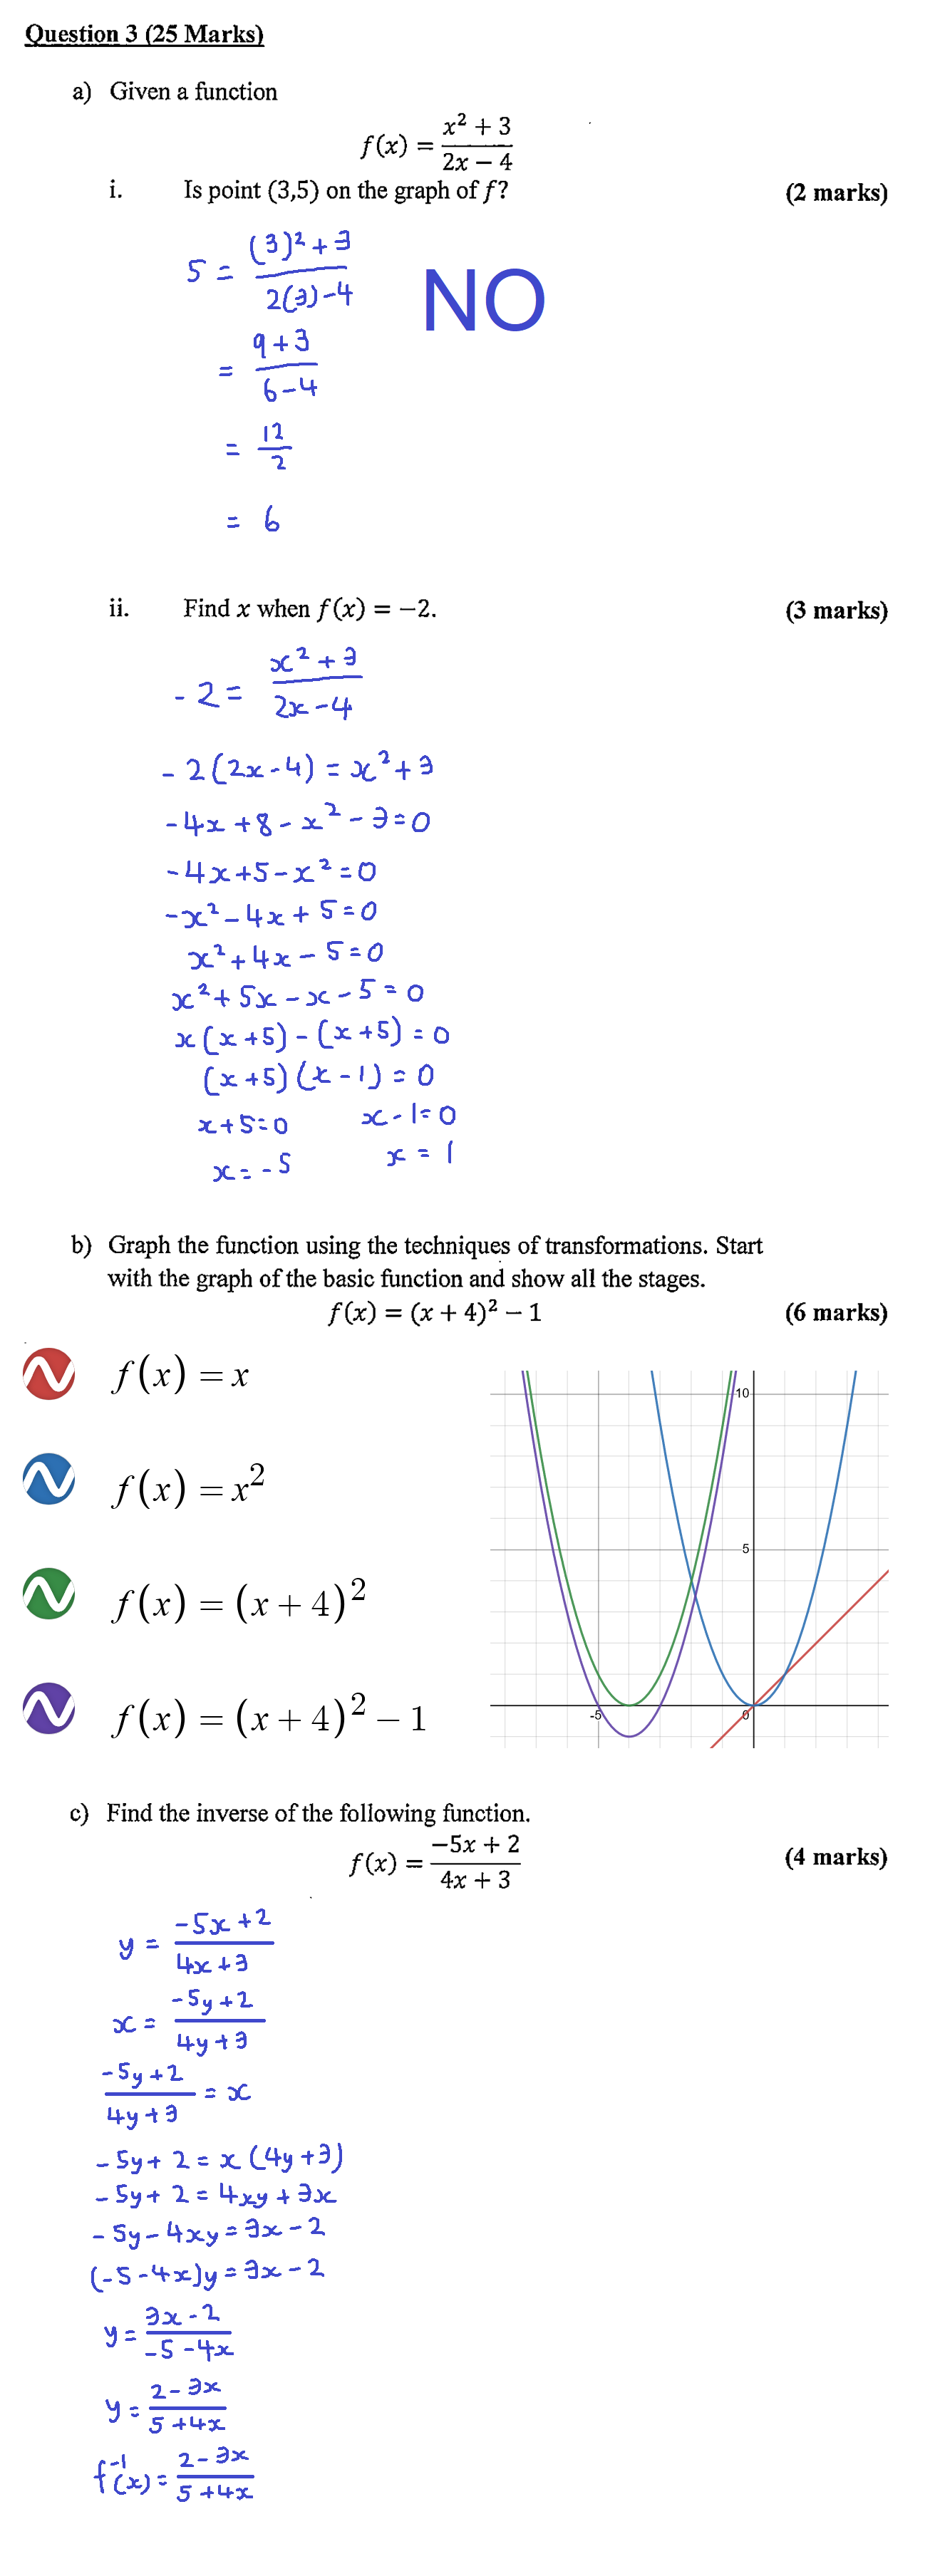 Question 3 (25 Marks)
a) Given a function
f(x) = (x² + 3)/(2x − 4)
i. Is point (3,5) on the graph of f? (2 marks)
5 = ((3)² + 3)/(2(3) − 4)
NO
= (9 + 3)/(6 − 4)
= 12/2
= 6
ii. Find x when f(x) = −2. (3 marks)
-2 = (x² + 3)/(2x − 4)
-2(2x − 4) = x² + 3
-4x + 8 − x² − 3 = 0
-4x + 5 − x² = 0
-x² − 4x + 5 = 0
x² + 4x − 5 = 0
x² + 5x − x − 5 = 0
x(x + 5) − (x + 5) = 0
(x + 5)(x − 1) = 0
x + 5 = 0 x − 1 = 0
x = -5 x = 1
b) Graph the function using the techniques of transformations. Start
with the graph of the basic function and show all the stages.
f(x) = (x + 4)² − 1 (6 marks)
f(x) = x
f(x) = x²
f(x) = (x + 4)²
f(x) = (x + 4)² − 1
10
5
-5 0
c) Find the inverse of the following function.
f(x) = (−5x + 2)/(4x + 3) (4 marks)
y = (-5x + 2)/(4x + 3)
x = (-5y + 2)/(4y + 3)
(-5y + 2)/(4y + 3) = x
-5y + 2 = x(4y + 3)
-5y + 2 = 4xy + 3x
-5y − 4xy = 3x − 2
(-5 − 4x)y = 3x − 2
y = (3x − 2)/(-5 − 4x)
y = (2 − 3x)/(5 + 4x)
f⁻¹(x) = (2 − 3x)/(5 + 4x)